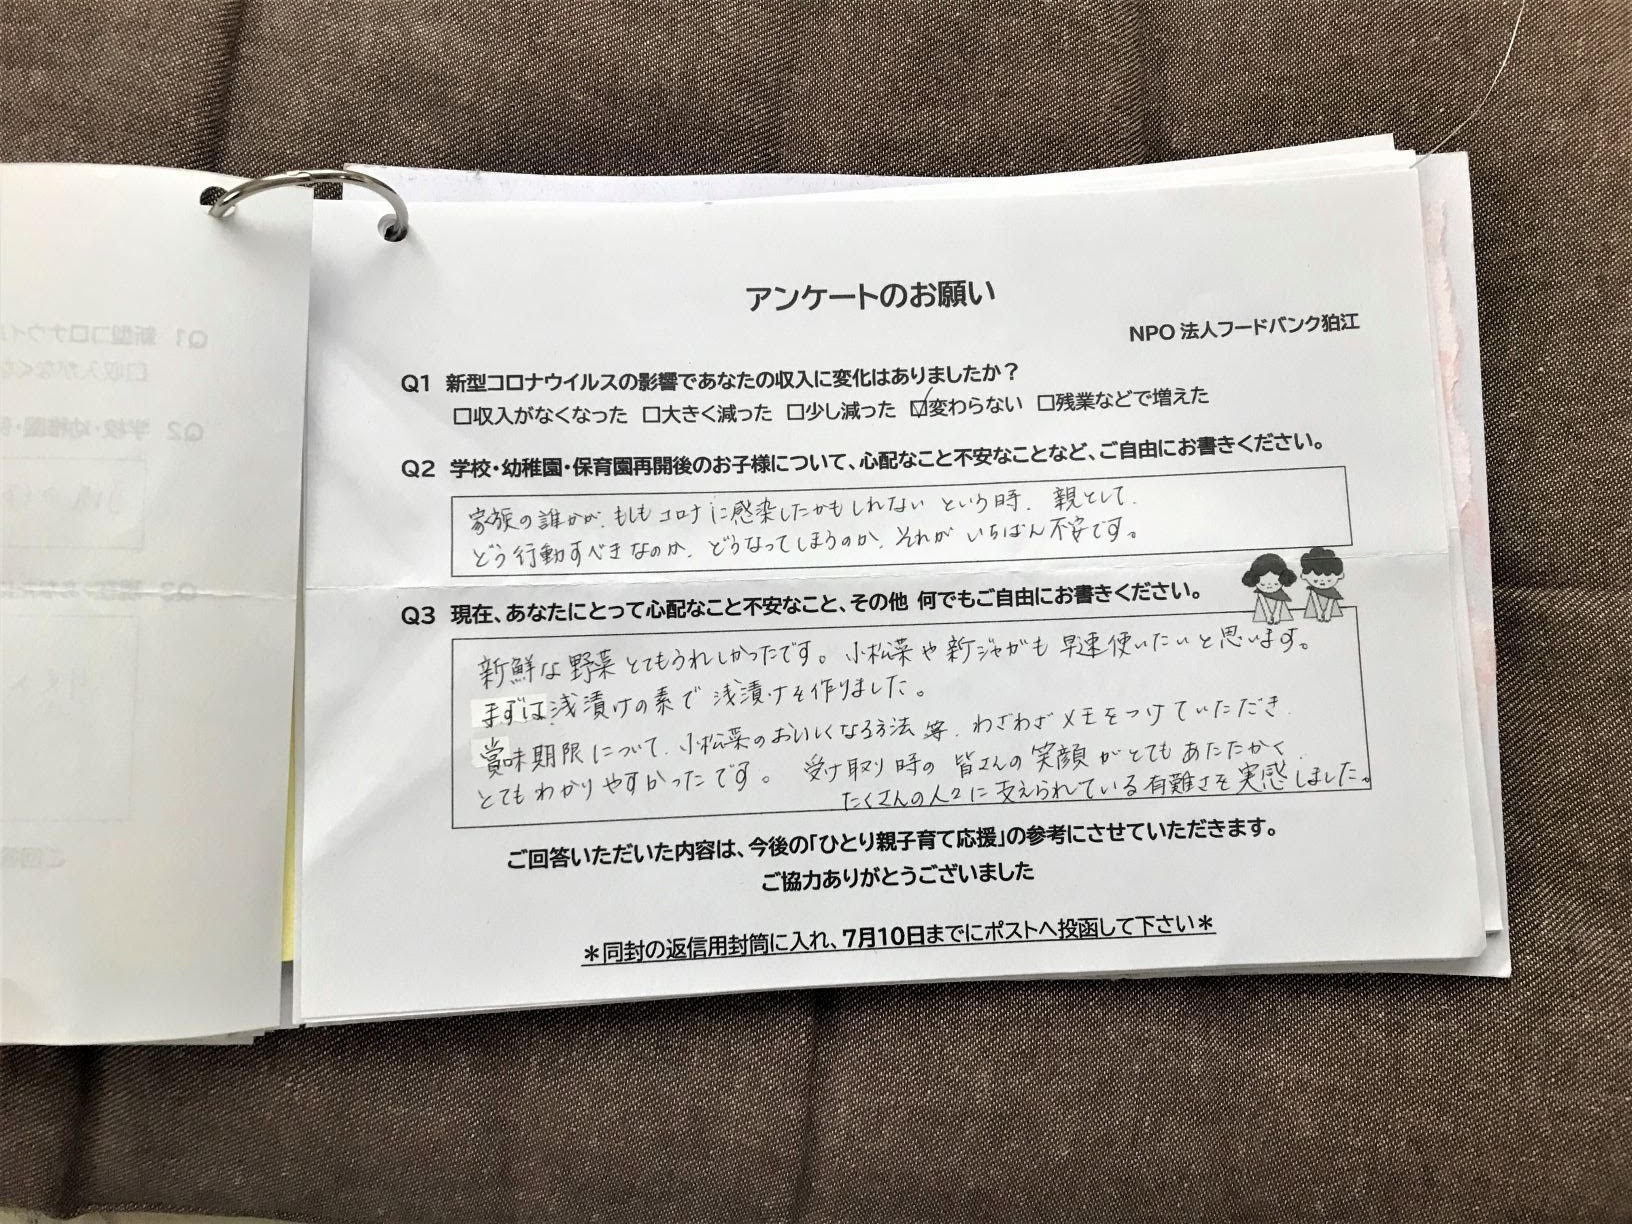 アンケートのお願い
NPO法人フードバンク狛江
Q1 新型コロナウイルスの影響であなたの収入に変化はありましたか？
□収入がなくなった □大きく減った □少し減った ☑変わらない □残業などで増えた
Q2 学校・幼稚園・保育園再開後のお子様について、心配なこと不安なことなど、ご自由にお書きください。
家族の誰かが、もしもコロナに感染したかもしれないという時、親として、
どう行動すべきなのか、どうなってしまうのか、それがいちばん不安です。
Q3 現在、あなたにとって心配なこと不安なこと、その他 何でもご自由にお書きください。
新鮮な野菜とてもうれしかったです。小松菜や新ジャガも早速使いたいと思います。
まずは浅漬けの素で浅漬けを作りました。
賞味期限について、小松菜のおいしくなる方法等、わざわざメモをつけていただき、
とてもわかりやすかったです。受け取り時の皆さんの笑顔がとてもあたたかく、
たくさんの人々に支えられている有難さを実感しました。
ご回答いただいた内容は、今後の「ひとり親子育て応援」の参考にさせていただきます。
ご協力ありがとうございました
＊同封の返信用封筒に入れ、7月10日までにポストへ投函して下さい＊